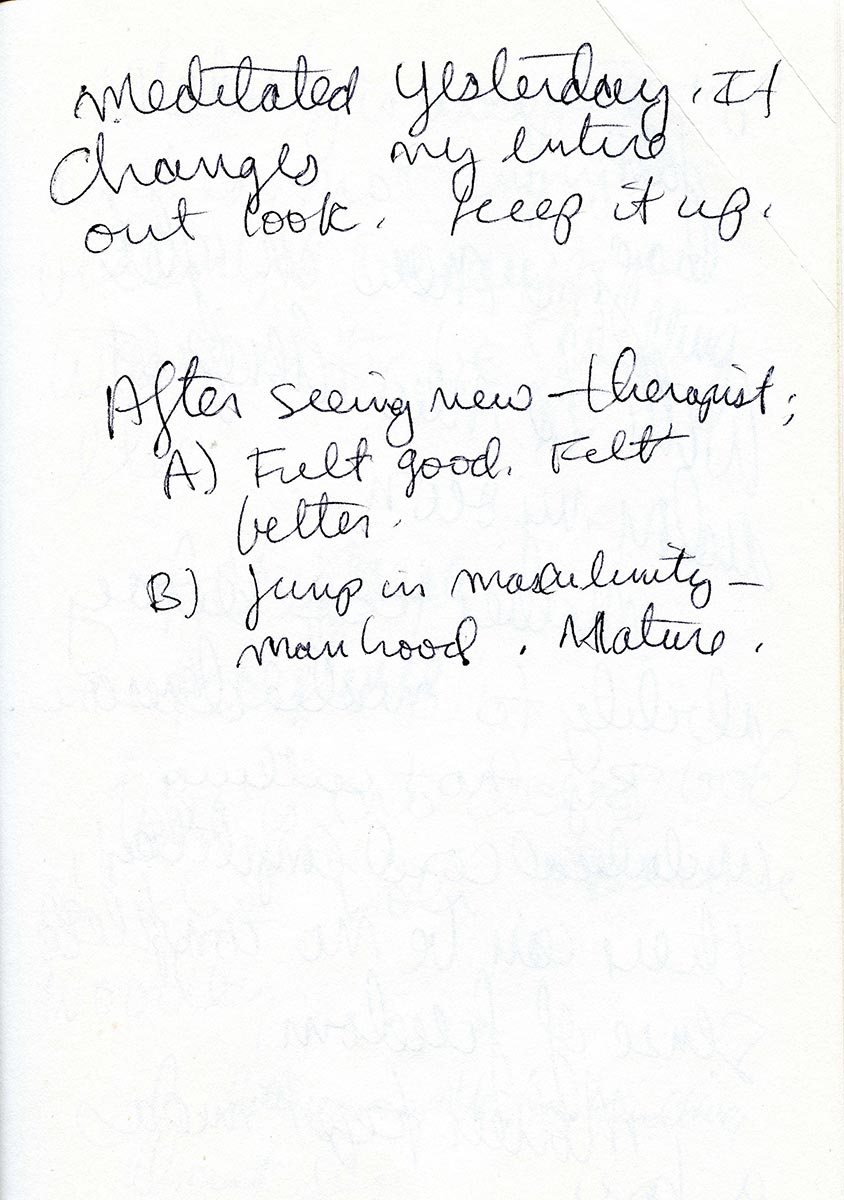 Meditated yesterday. It
changes my entire
out look. Keep it up.
After seeing new therapist;
A) Fuelt good. Felt
better.
B) Jump in masculinity -
manhood. Mature.